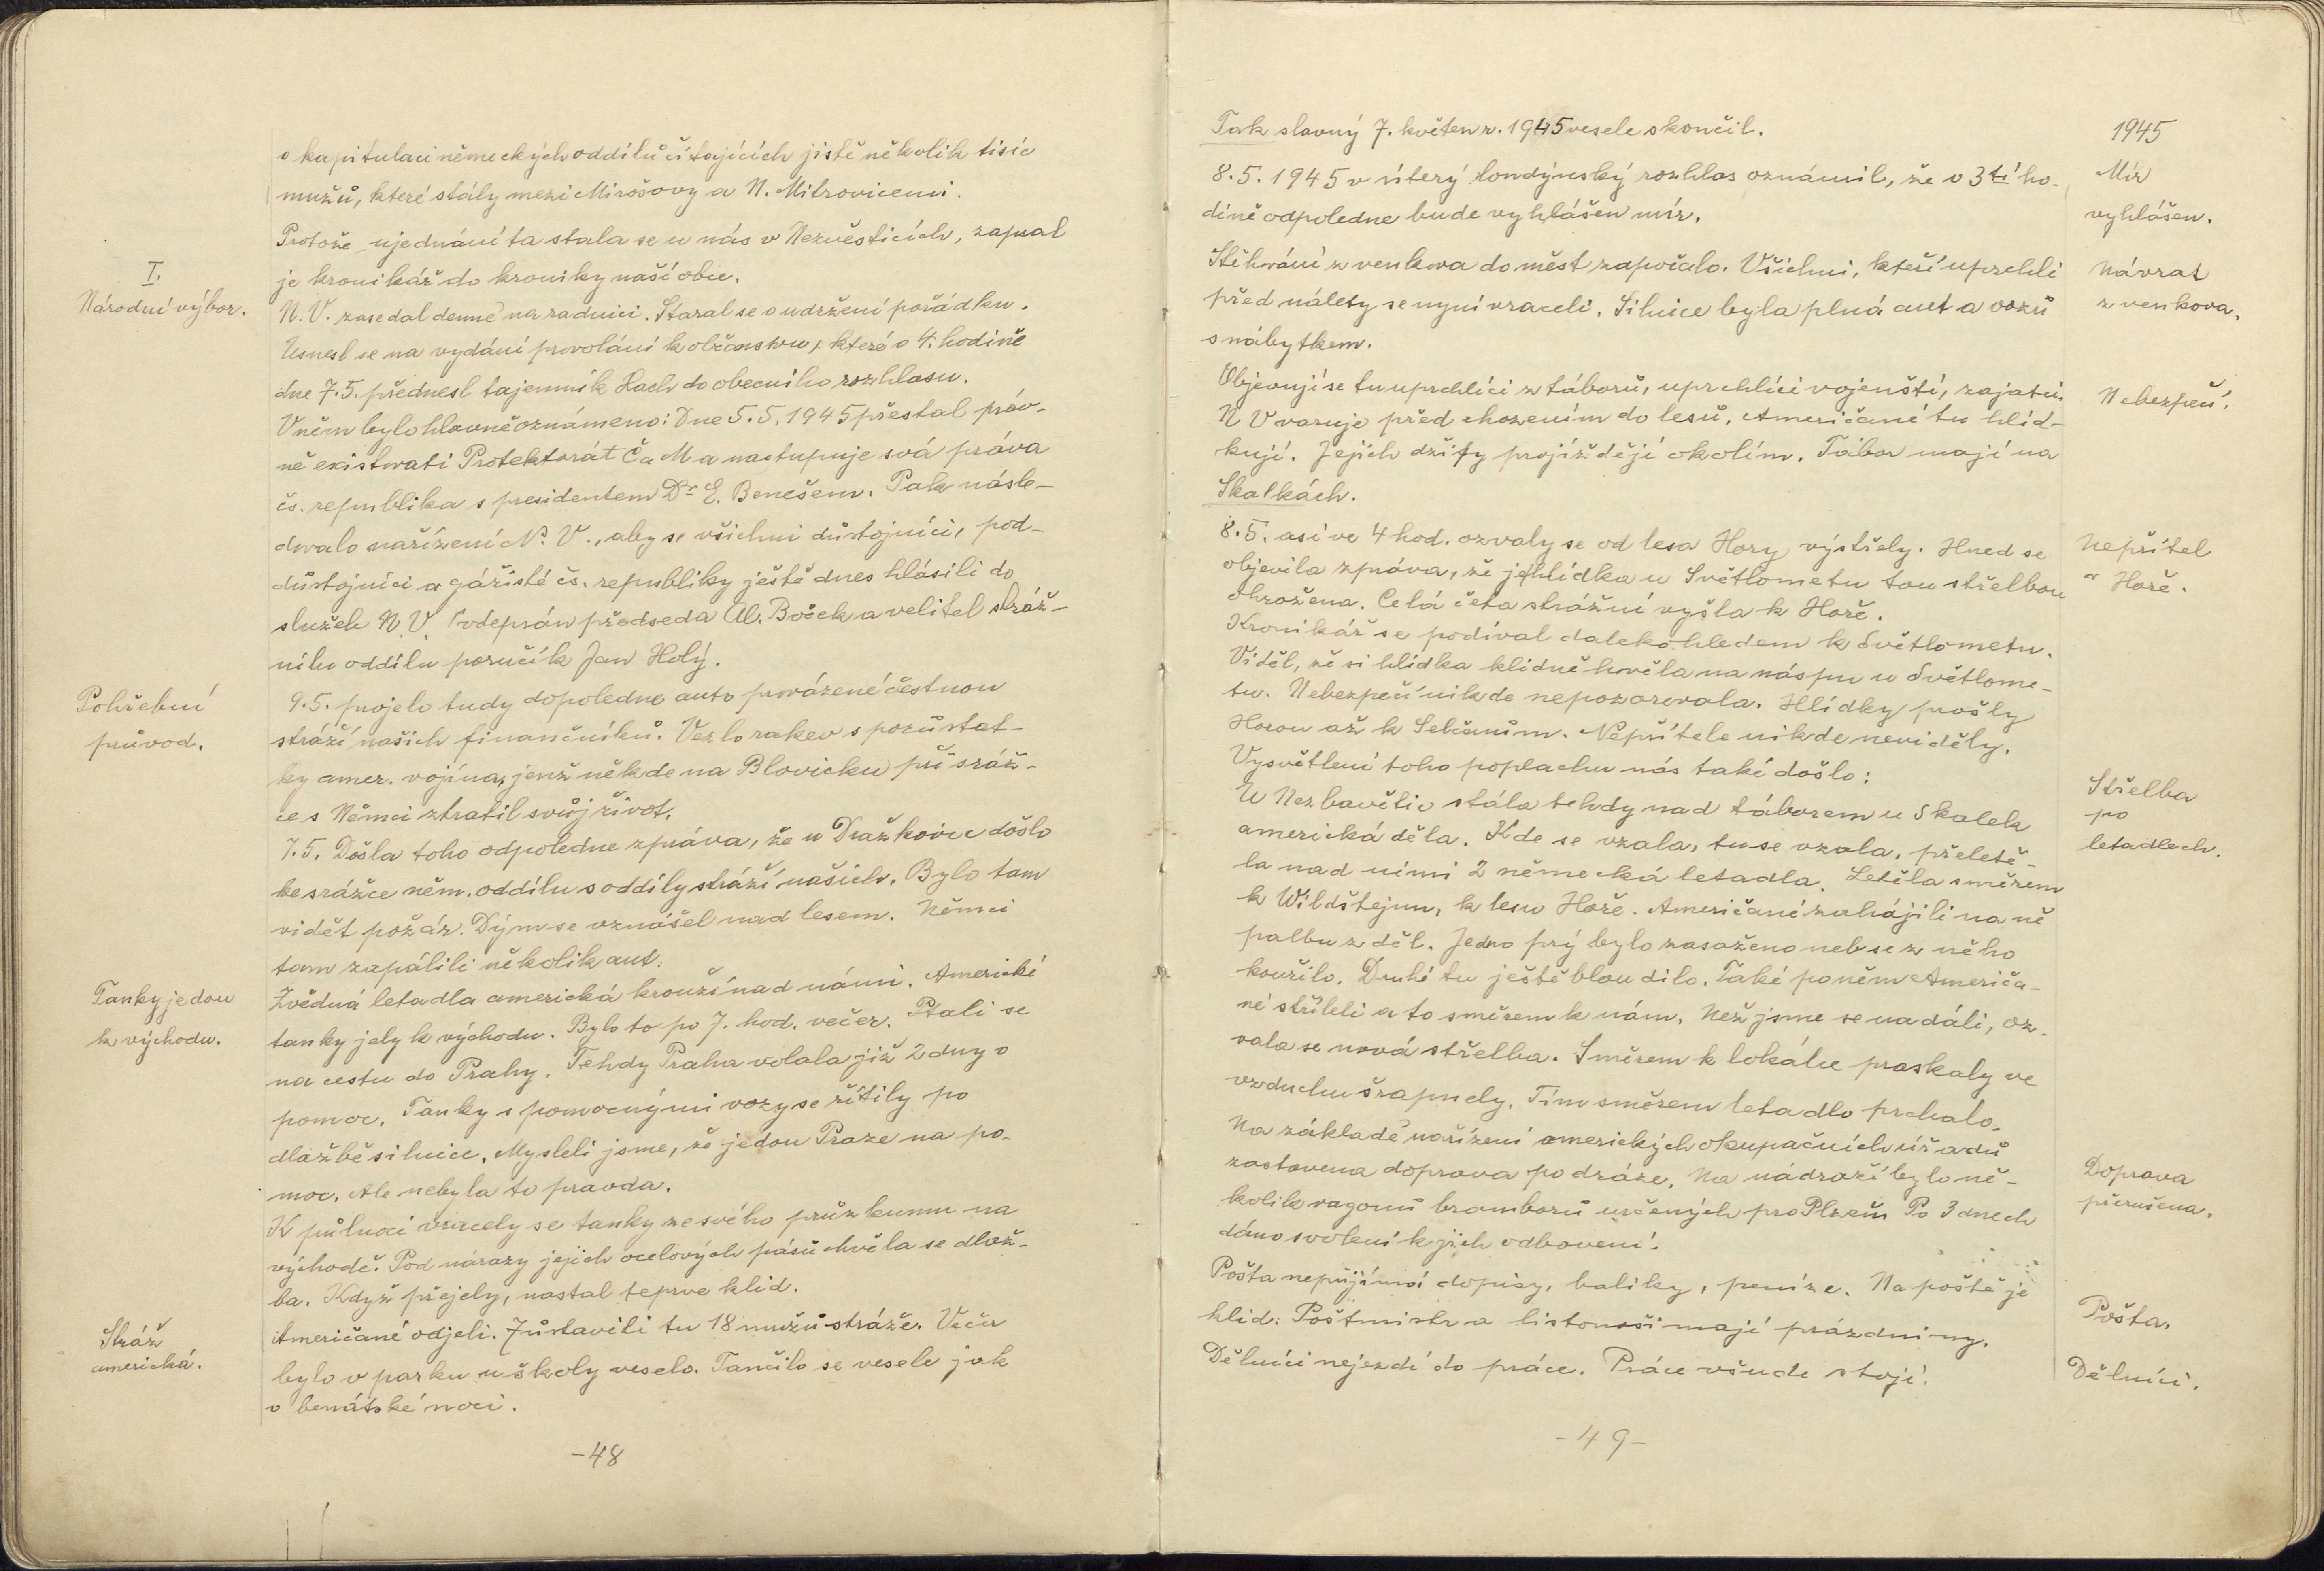 o kapitulaci německých oddílů čítajících jistě několik tisíc
mužů, které stály mezi Mirošovy a N. Mitrovicemi.
Protože ujednání ta stala se u nás v Nezvěsticích, zapsal
je kronikář do kroniky naší obce.
I.
Národní výbor.
N. V. zasedal denně na radnici. Staral se o udržení pořádku.
Usnesl se na vydání provolání k občanstvu, které o 4. hodině
dne 7.5. přednesl tajemník Hach do obecního rozhlasu.
V něm bylo hlavně oznámeno: Dne 5.5.1945 přestal práv-
ně existovati Protektorát Č a M a nastupuje svá práva
čs. republika s presidentem Dr E. Benešem. Pak násle-
dovalo nařízení N. V., aby se všichni důstojníci, pod-
důstojníci a gážisté čs. republiky ještě dnes hlásili do
služeb N. V. Podepsán předseda Al. Boček a velitel stráž-
ního oddílu poručík Jan Holý.
Pohřební
průvod.
9.5. projelo tudy dopoledne auto provázené čestnou
stráží našich finančníků. Vezlo rakev s pozůstat-
ky amer. vojína, jenž někde na Blovicku při sráž-
ce s Němci ztratil svůj život.
7.5. Došla toho odpoledne zpráva, že u Dražkovic došlo
ke srážce něm. oddílu s oddíly stráží našich. Bylo tam
vidět požár. Dým se vznášel nad lesem. Němci
tam zapálili několik aut.
Tanky jedou
k východu.
Zvědná letadla americká krouží nad námi. Americké
tanky jely k východu. Bylo to po 7. hod. večer. Ptali se
na cestu do Prahy. Tehdy Praha volala již 2 dny o
pomoc. Tanky s pomocnými vozy se řítily po
dlažbě silnice. Mysleli jsme, že jedou Praze na po-
moc. Ale nebyla to pravda.
K půlnoci vracely se tanky ze svého průzkumu na
východě. Pod nárazy jejich ocelových pásů chvěla se dlaž-
ba. Když přejely, nastal teprve klid.
Stráž
americká.
Američané odjeli. Zůstavili tu 18 mužů stráže. Večer
bylo v parku u školy veselo. Tančilo se vesele jak
o benátské noci.
-48
Tak slavný 7. květen r. 1945 vesele skončil.
1945
Mír
vyhlášen.
8.5.1945 v úterý londýnský rozhlas oznámil, že v 3tí ho-
dině odpoledne bude vyhlášen mír.
Návrat
z venkova.
Stěhování z venkova do měst započalo. Všichni, kteří uprchli
před nálety se nyní vraceli. Silnice byla plná aut a vozů
s nábytkem.
Nebezpečí.
Objevují se tu uprchlíci z táborů, uprchlíci vojenští, zajatci.
N V varuje před chozením do lesů. Američané tu hlíd-
kují. Jejich džípy projíždějí okolím. Tábor mají na
Skalkách.
Nepřítel
v Hoře.
8.5. asi ve 4 hod. ozvaly se od lesa Hory výstřely. Hned se
objevila zpráva, že je hlídka u Světlometu tou střelbou
ohrožena. Celá četa strážní vyšla k Hoře.
Kronikář se podíval dalekohledem k Světlometu.
Viděl, že si hlídka klidně hověla na náspu u Světlome-
tu. Nebezpečí nikde nepozorovala. Hlídky prošly
Horou až k Lebčanům. Nepřítele nikde neviděly.
Vysvětlení toho poplachu nás také došlo:
Střelba
po
letadlech.
U Nezbavětic stála tehdy nad táborem u Skalek
americká děla. Kde se vzala, tu se vzala, přeletě-
la nad nimi 2 německá letadla. Letěla směrem
k Wildštejnu, k lesu Hoře. Američané zahájili na ně
palbu z děl. Jedno prý bylo zasaženo neb se z něho
kouřilo. Druhé tu ještě bloudilo. Také po něm Američa-
né stříleli a to směrem k nám. Než jsme se nadáli, oz-
vala se nová střelba. Směrem k lokálce praskaly ve
vzduchu šrapnely. Tím směrem letadlo prchalo.
Doprava
přerušena.
Na základě nařízení amerických okupačních úřadů
zastavena doprava po dráze. Na nádraží bylo ně-
kolik vagonů bramborů určených pro Plzeň. Po 3 dnech
dáno svolení k jich odbavení.
Pošta.
Pošta nepřijímá dopisy, balíky, peníze. Na poště je
klid. Poštmistr a listonoši mají prázdniny.
Dělníci.
Dělníci nejezdí do práce. Práce všude stojí.
-49-